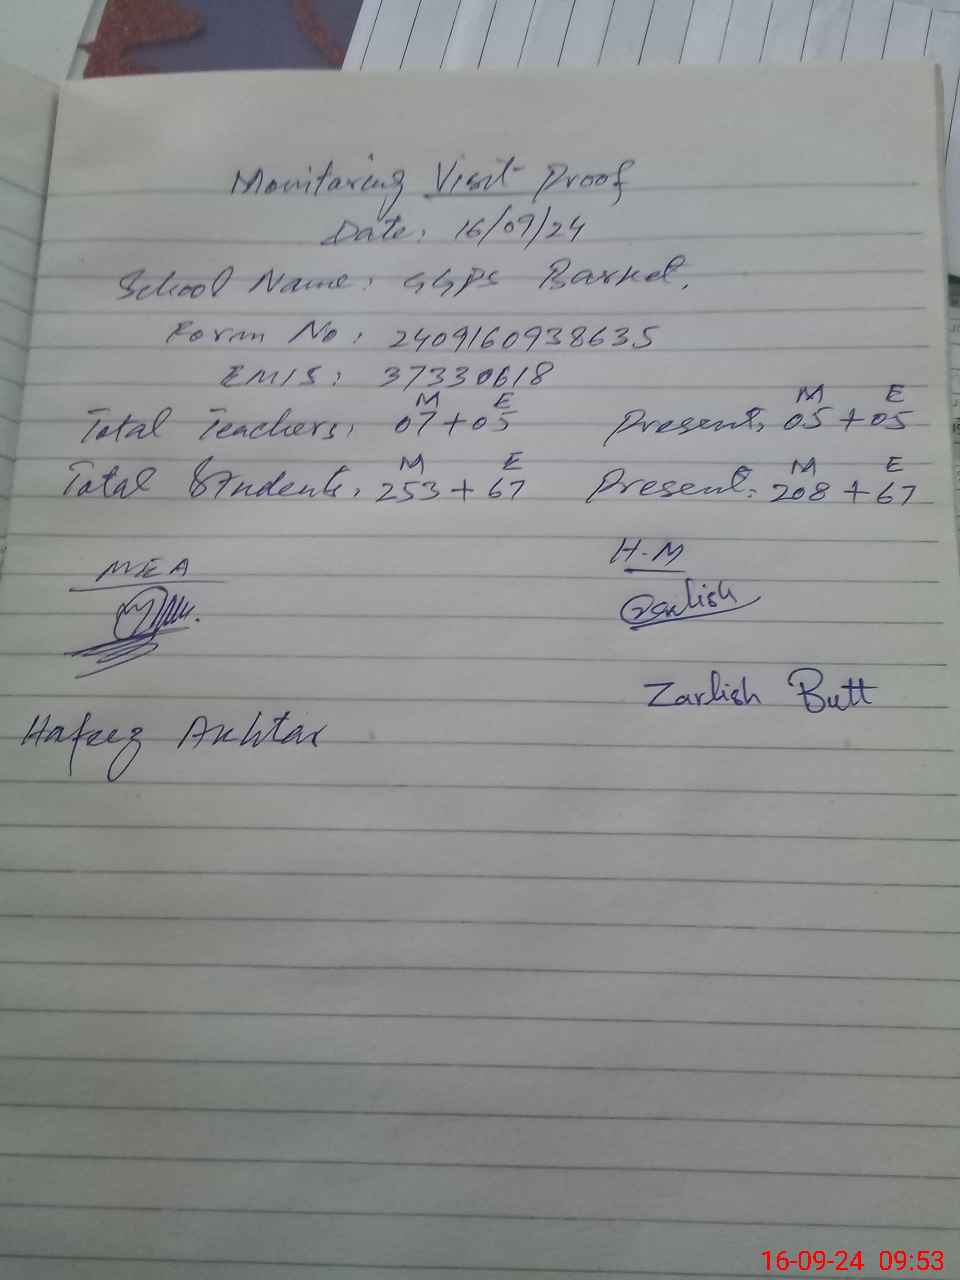 Monitoring Visit Proof
Date: 16/09/24
School Name: GGPS
Form No: 2409160938635
EMIS: 37330618
M E M E
Total Teachers: 07+05 Present: 05+05
M E M E
Total Students: 253+67 Present: 208+67
MEA H.M
Zarlish
Zarlish Butt
Hafeez Akhtar
16-09-24 09:53